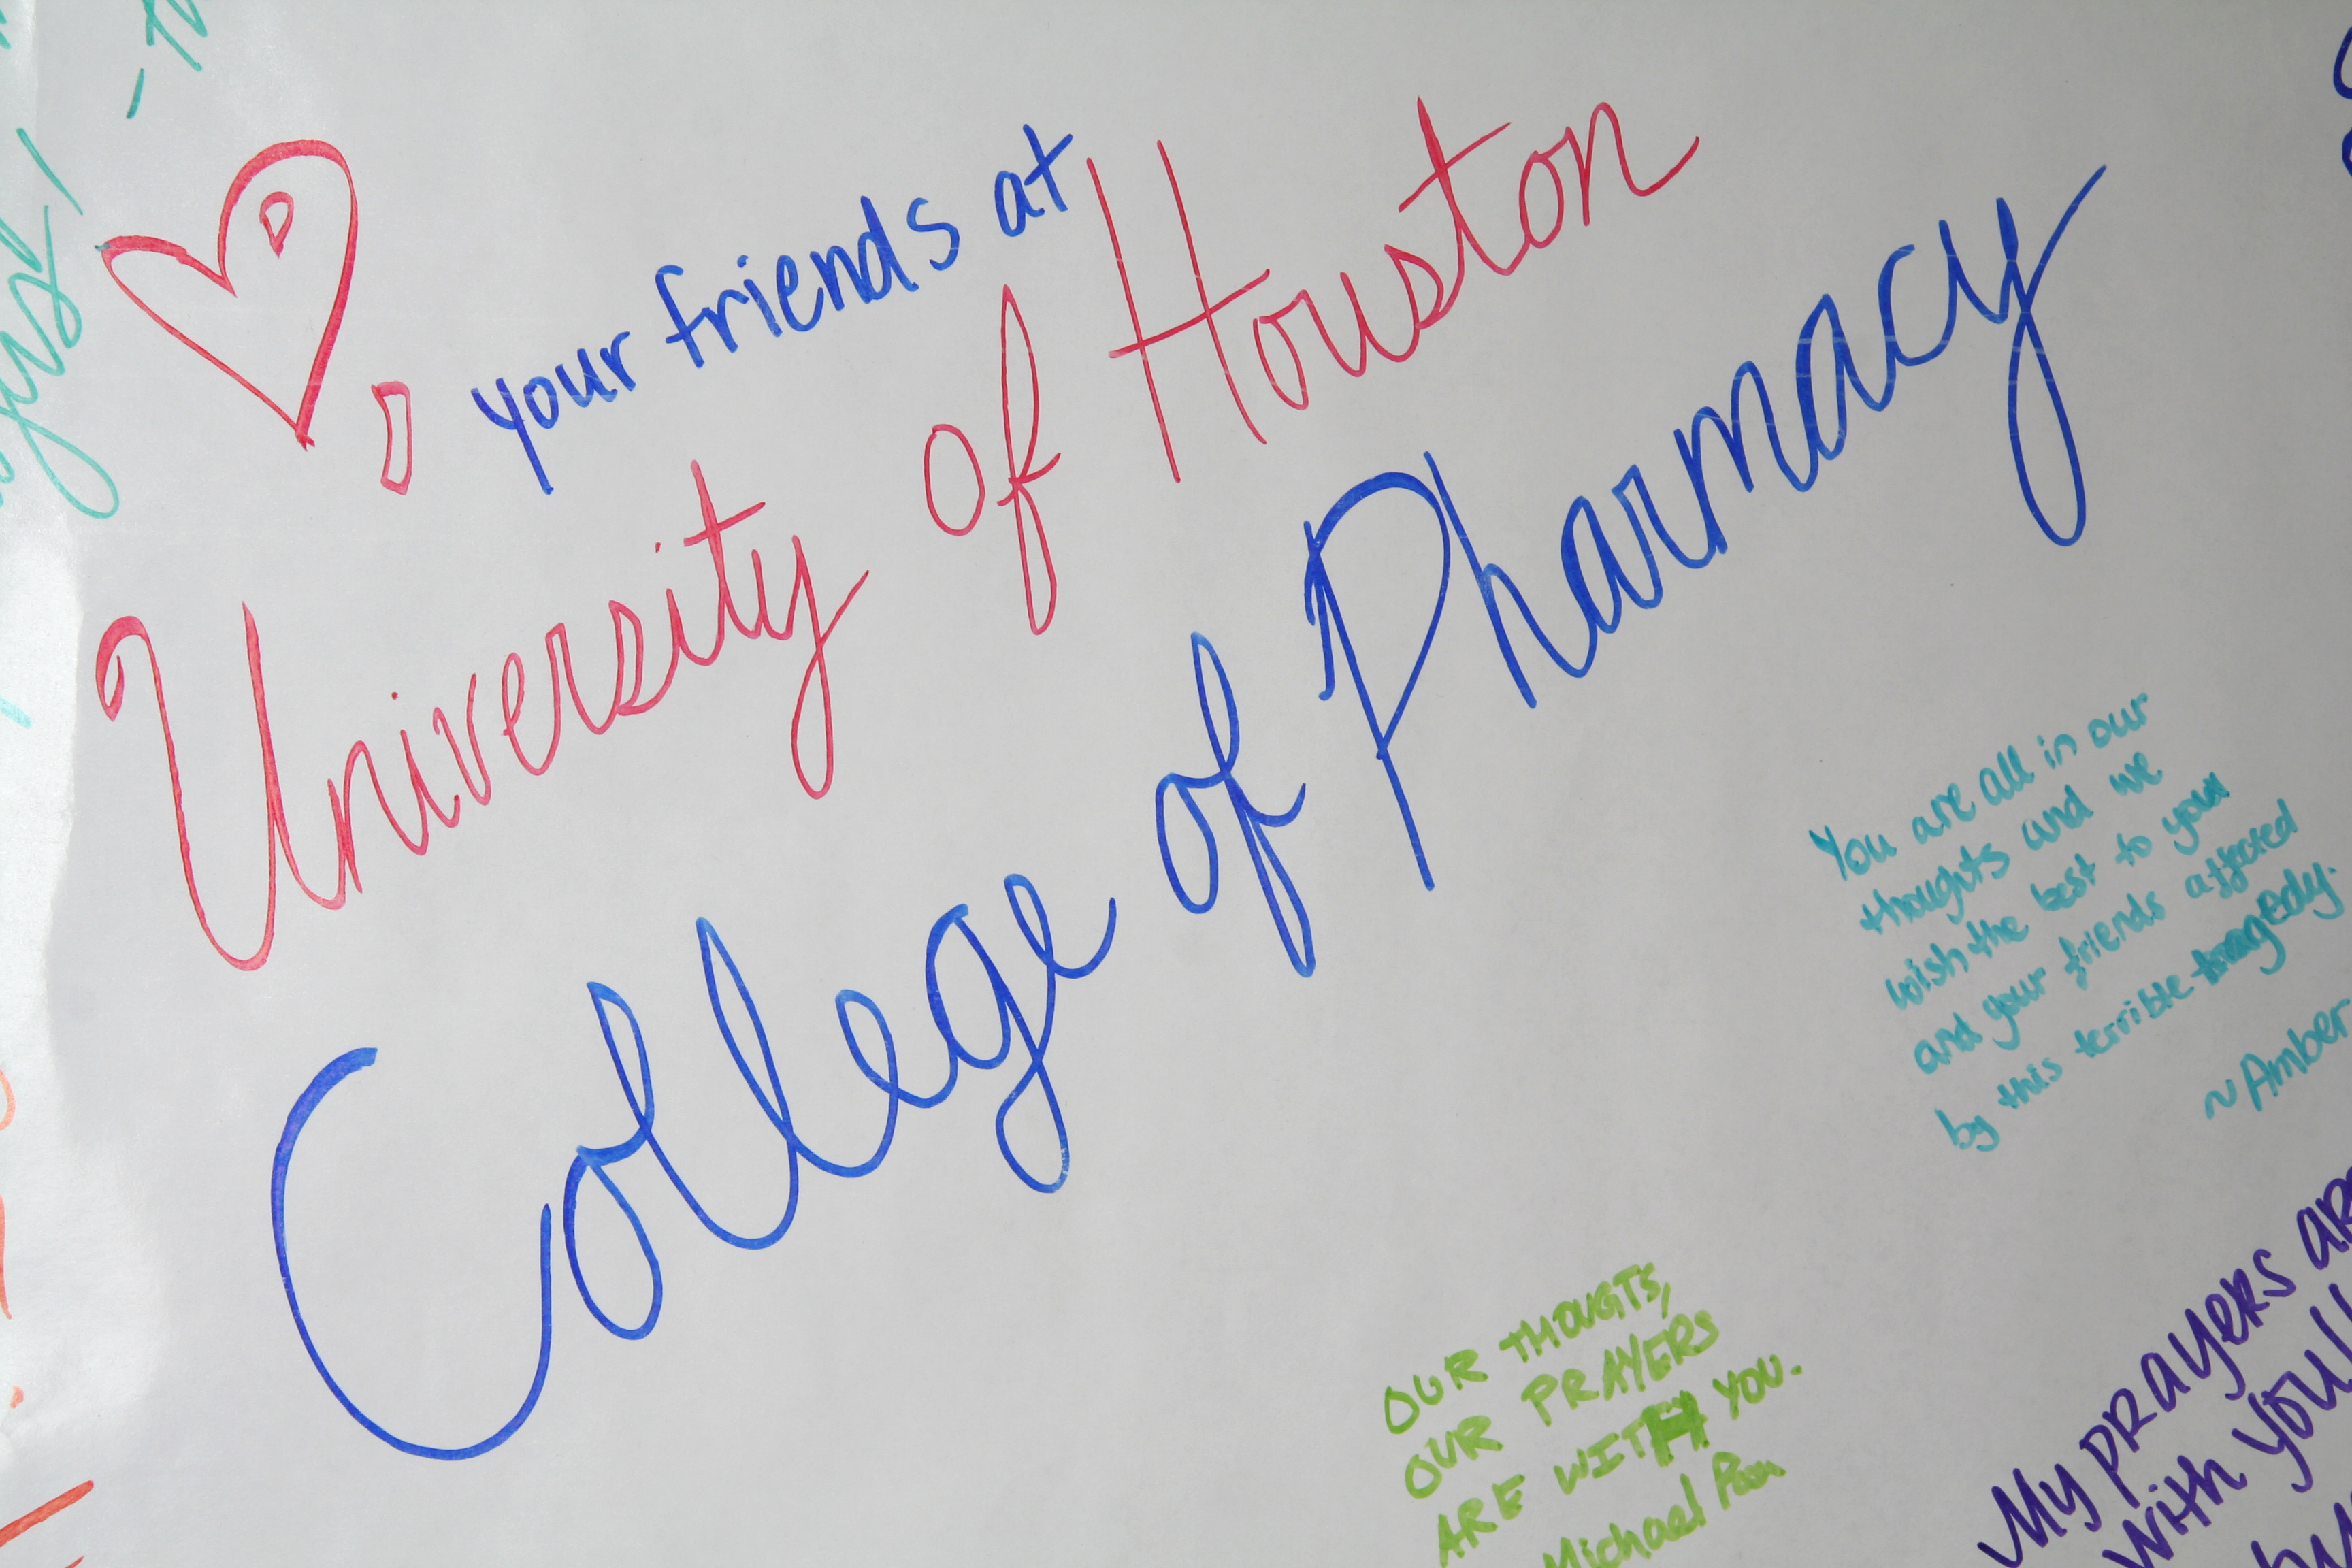 your friends at
University of Houston
College of Pharmacy
You are all in our
thoughts and we
wish the best to you
and your friends affected
by this terrible tragedy.
~Amber
OUR THOUGTS,
OUR PRAYERS
ARE WITH YOU.
Michael
My prayers
with you!